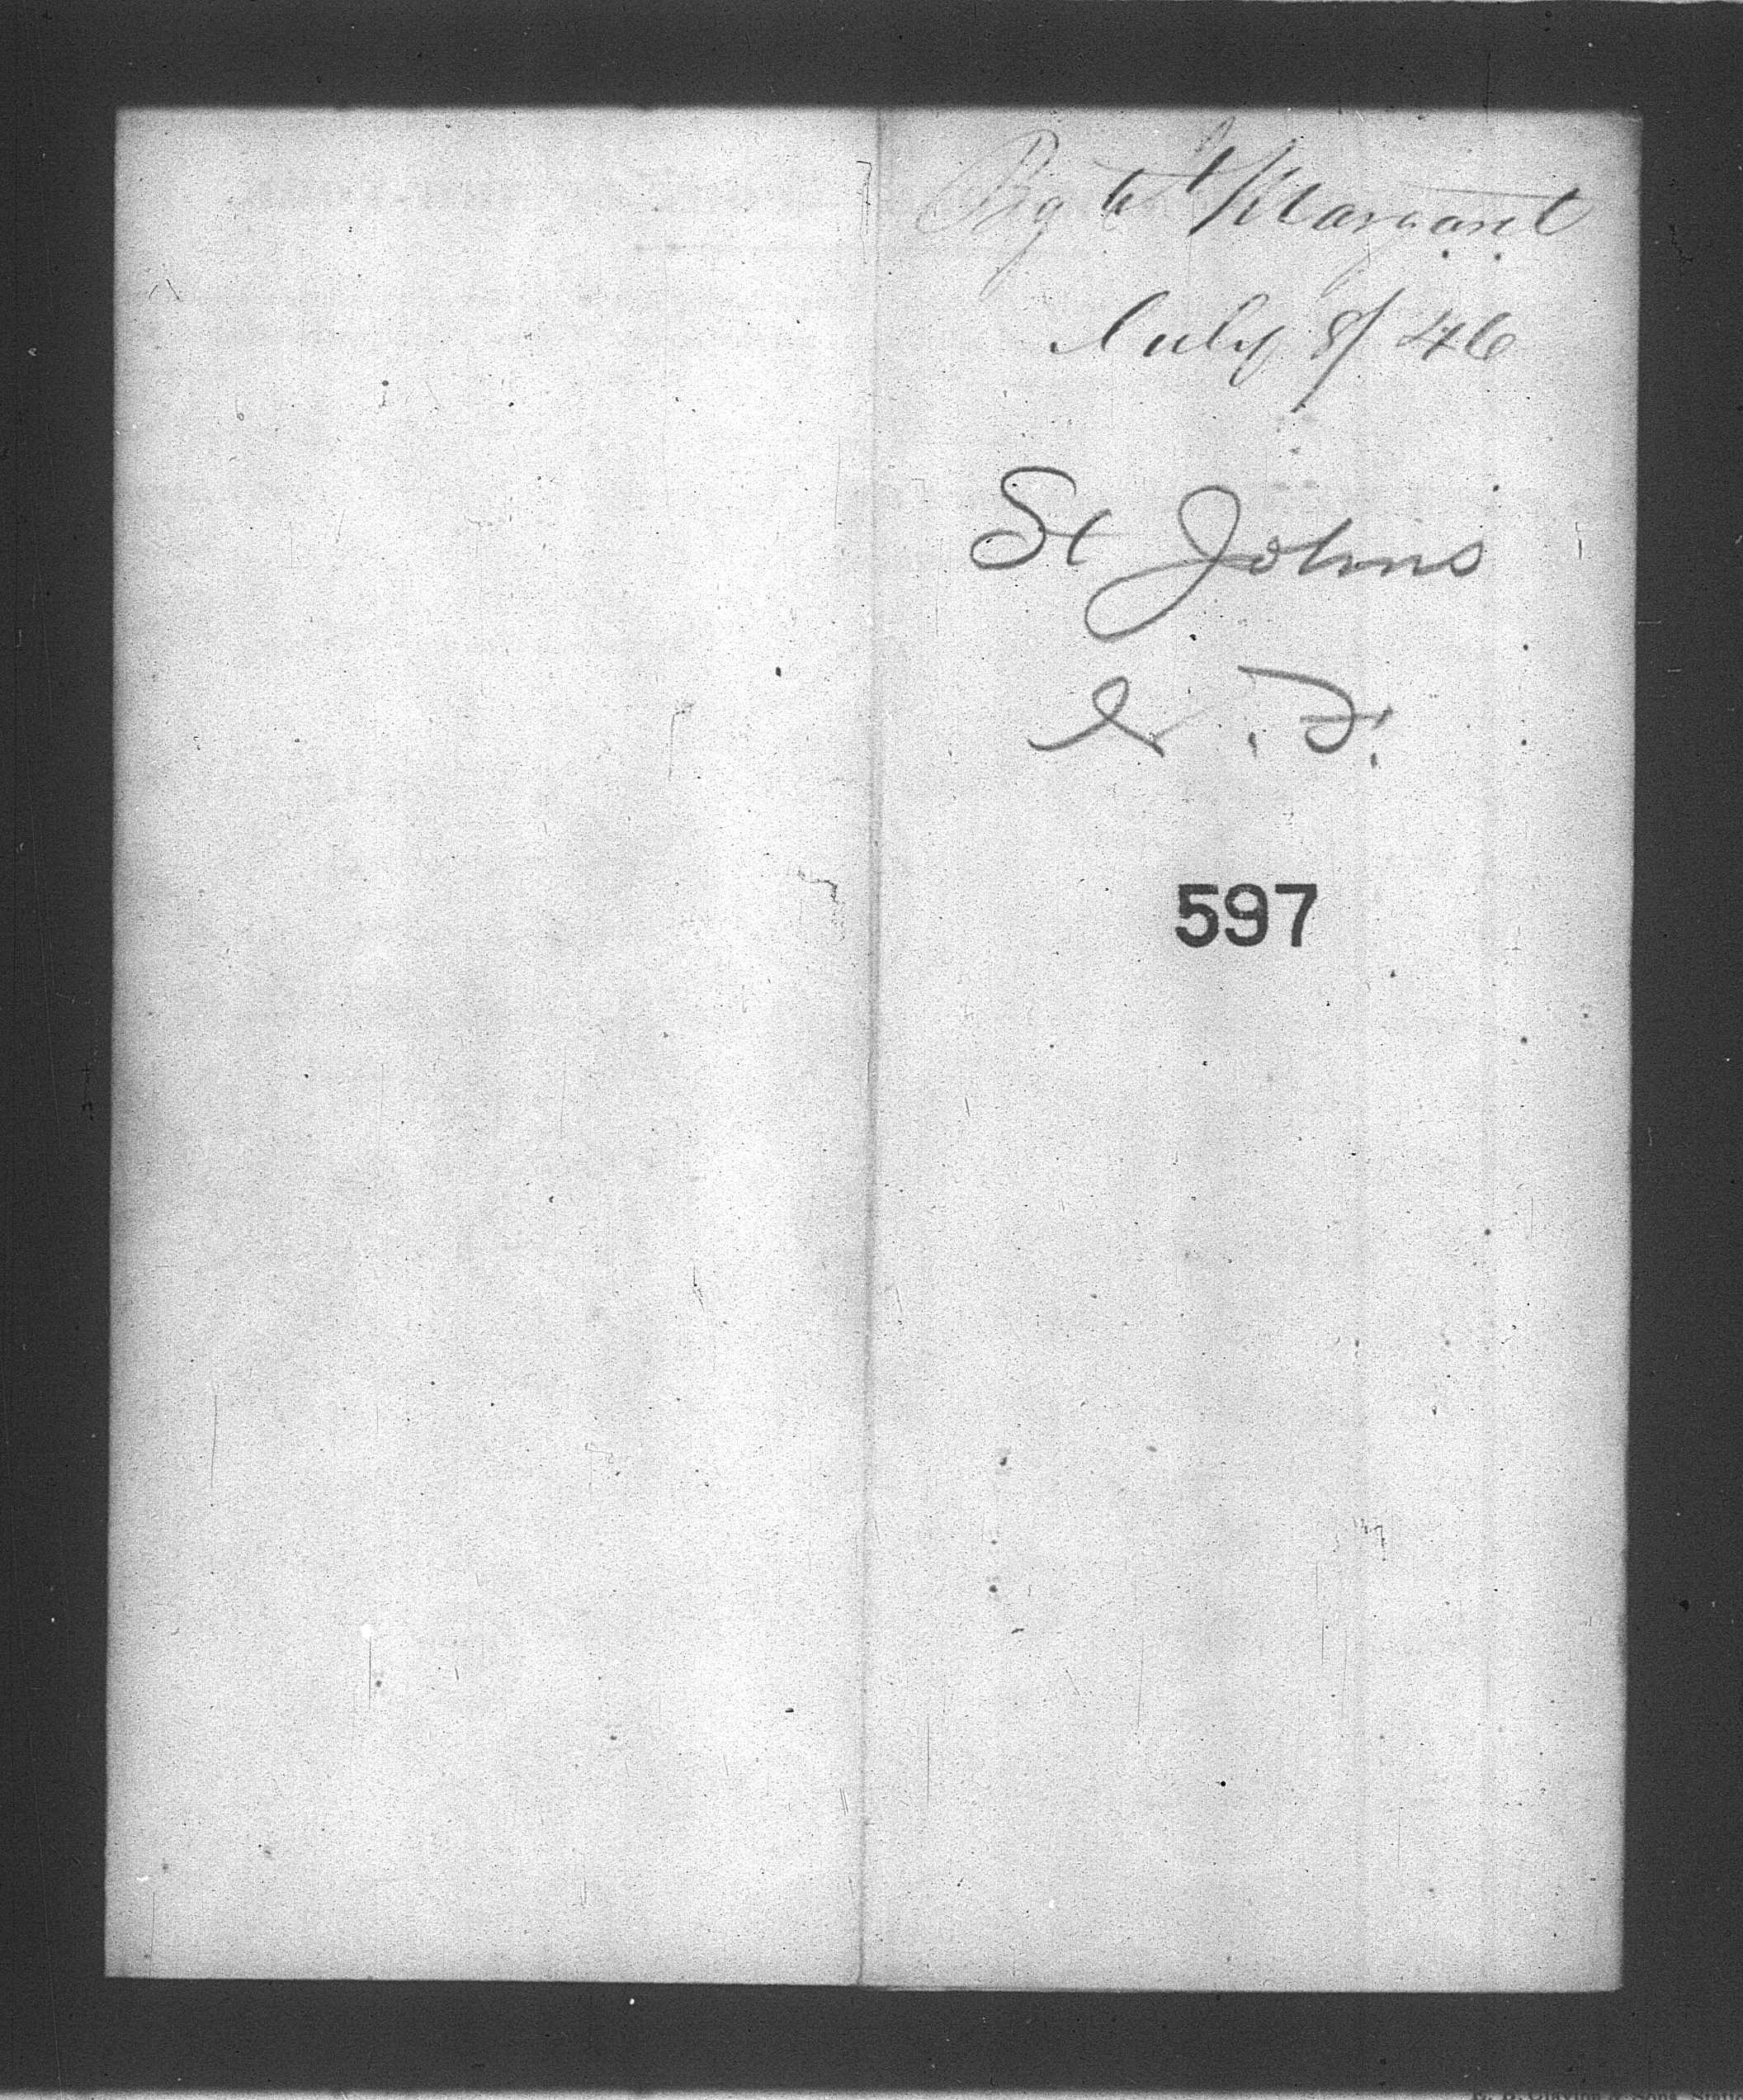 Margaret
July 8/46
St Johns
N. F.
597